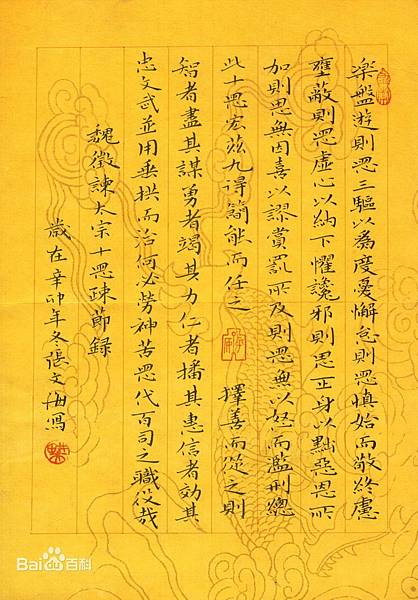 樂盤遊則思三驅以為度憂懈怠則思慎始而敬終慮
壅蔽則思虛心以納下懼讒邪則思正身以黜惡恩所
加則思無因喜以謬賞罰所及則思無以怒而濫刑總
此十思宏茲九得簡能而任之 擇善而從之則
智者盡其謀勇者竭其力仁者播其惠信者効其
忠文武並用垂拱而治何必勞神苦思代百司之職役哉
魏徵諫太宗十思疎節録
歲在辛卯年冬張文海寫
Bai百科